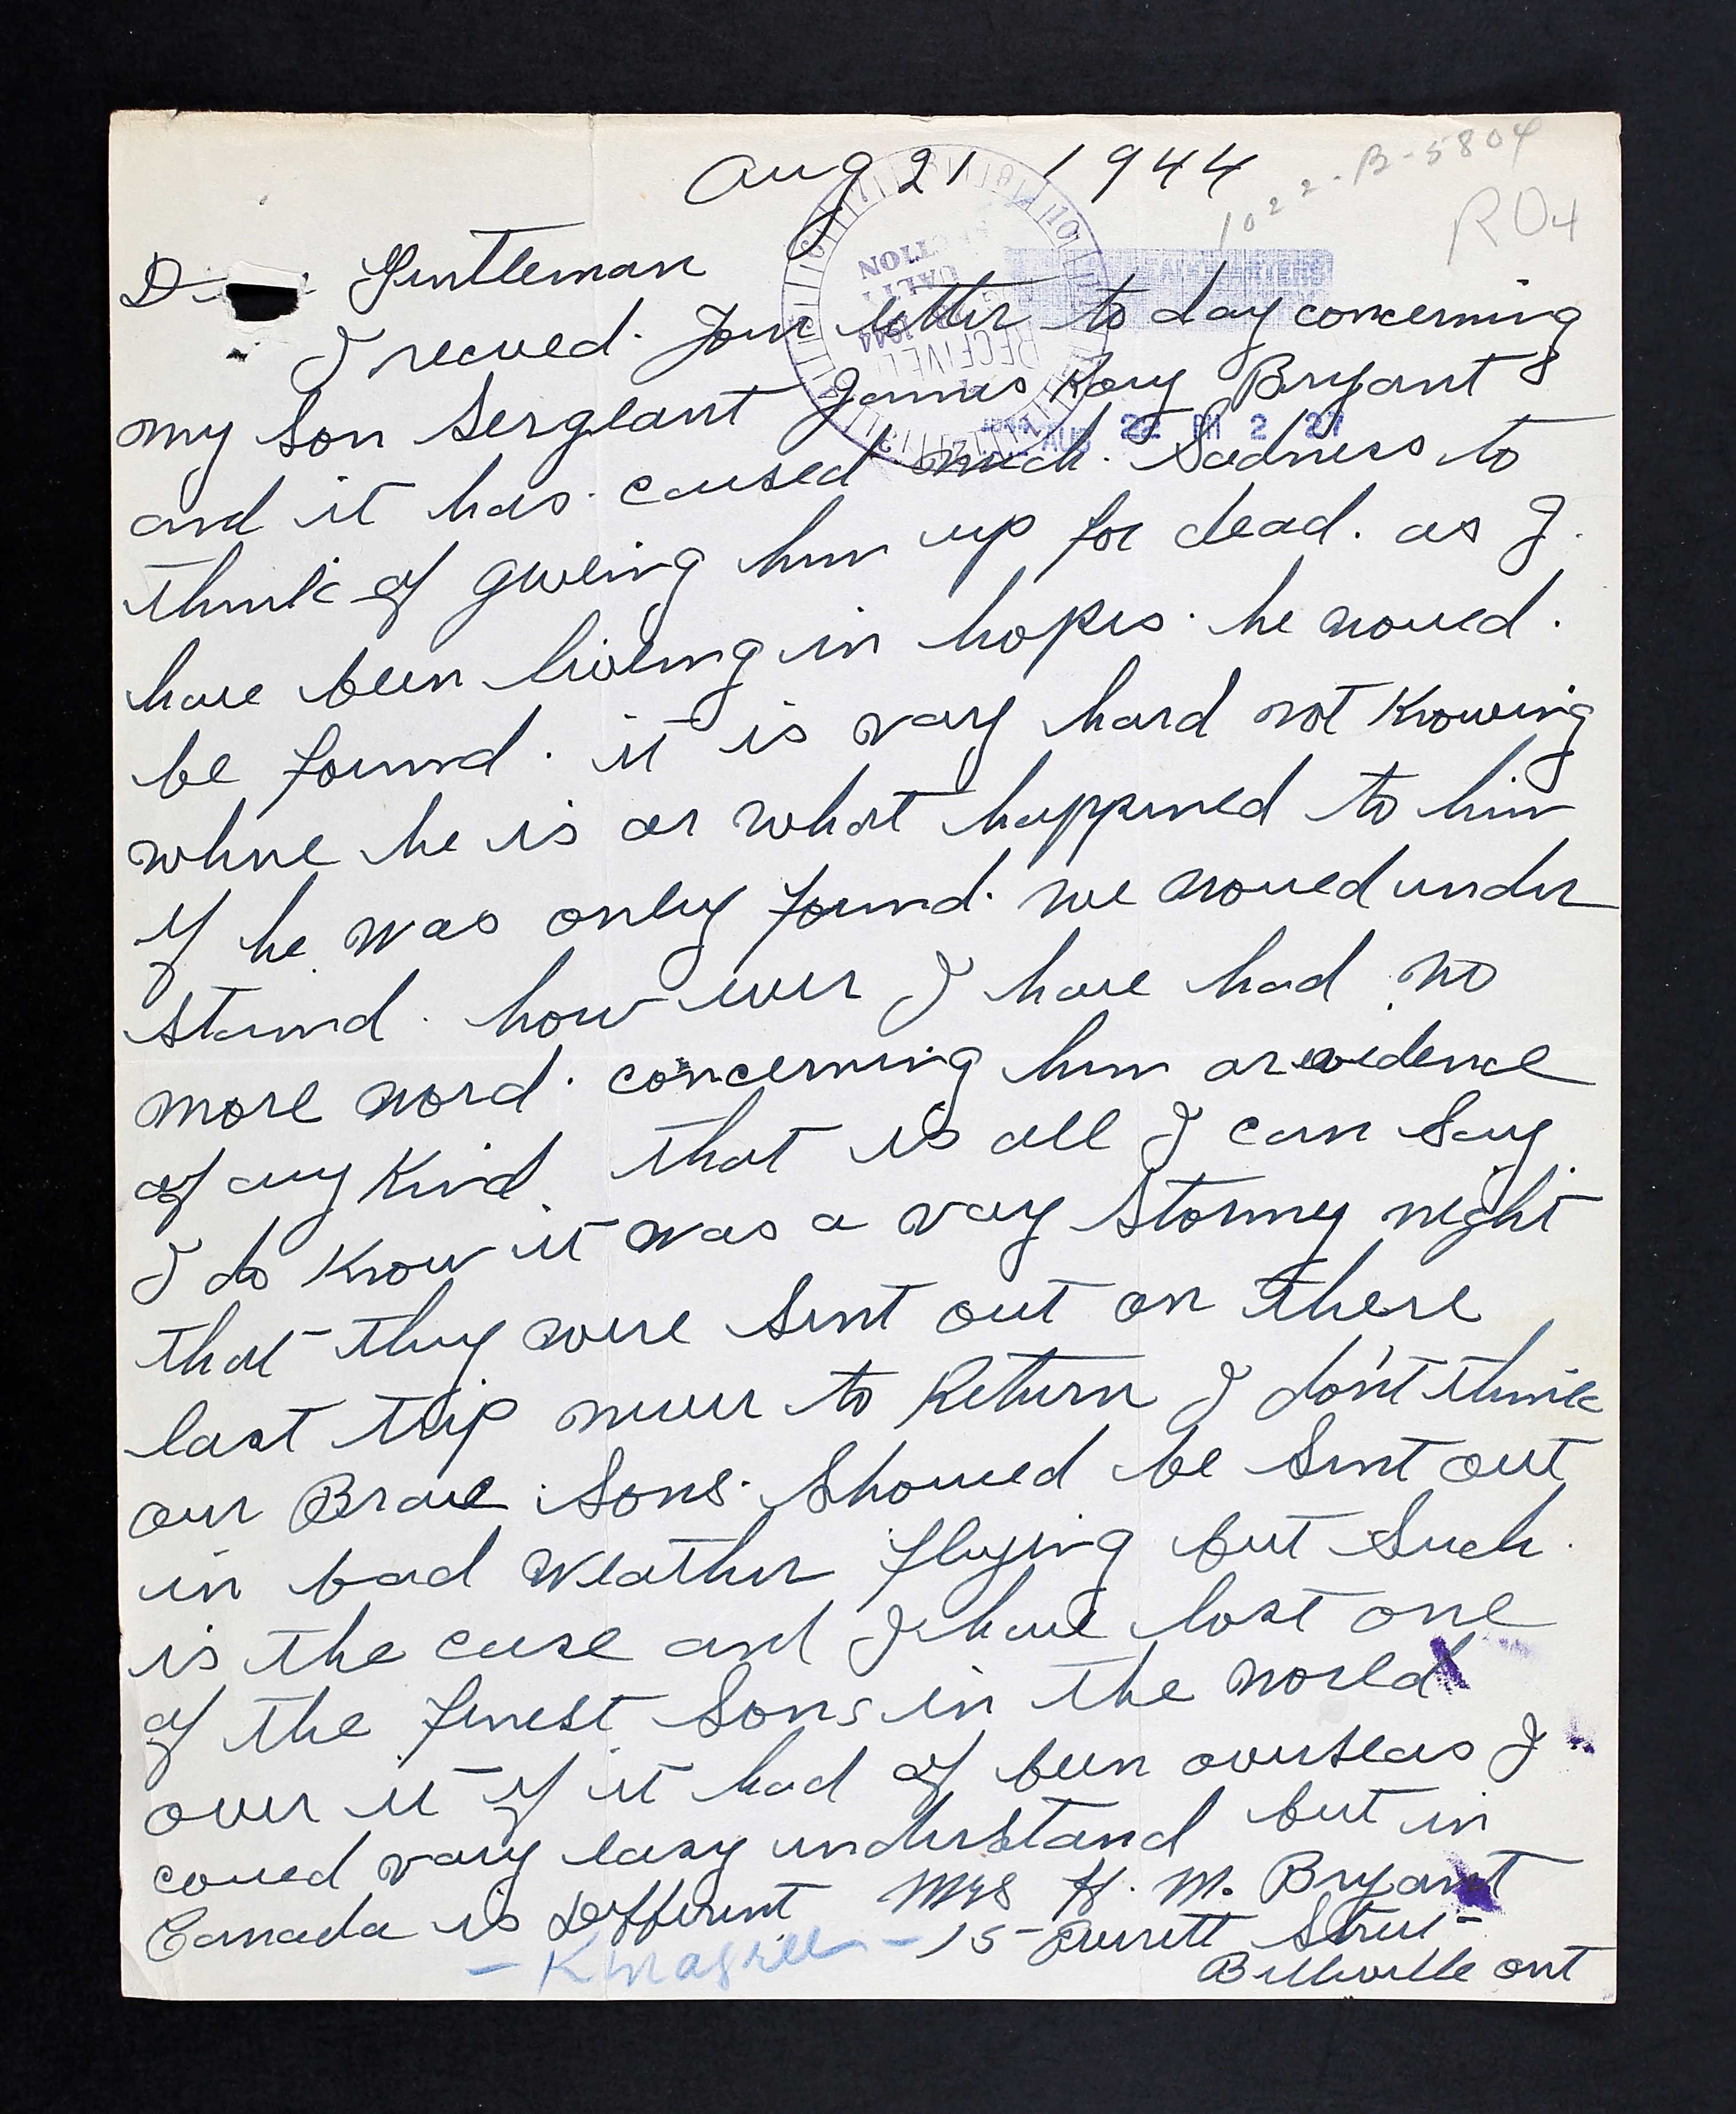 Aug 21 1944
1022-B-5804
RO4
Gentleman
I recued. your letter to day concerning
my Son Sergeant James Roy Bryant
AUG 22 PM 2 27
and it has. caused much. Sadness to
think of giveing him up for dead. as I.
have been liveing in hopes. he woued.
be found. it is vary hard not Knowing
where he is or what happened to him
if he was only found. we woued under
stand. how ever I have had no
more word. concerning him or evidence
of any Kind. that is all I can Say.
I do Know it was a vary Stormey night
that they were Sent out on there
last trip never to Return I don't think
our Brave Sons. Shoued be Sent out
in bad weather flying but Such.
is the case and I have lost one
of the finest Sons in the world
over it if it had of been overseas I
coued vary easy understand but in
Canada is Different Mrs H. M. Bryant
15 - Everett Street
Belleville ont